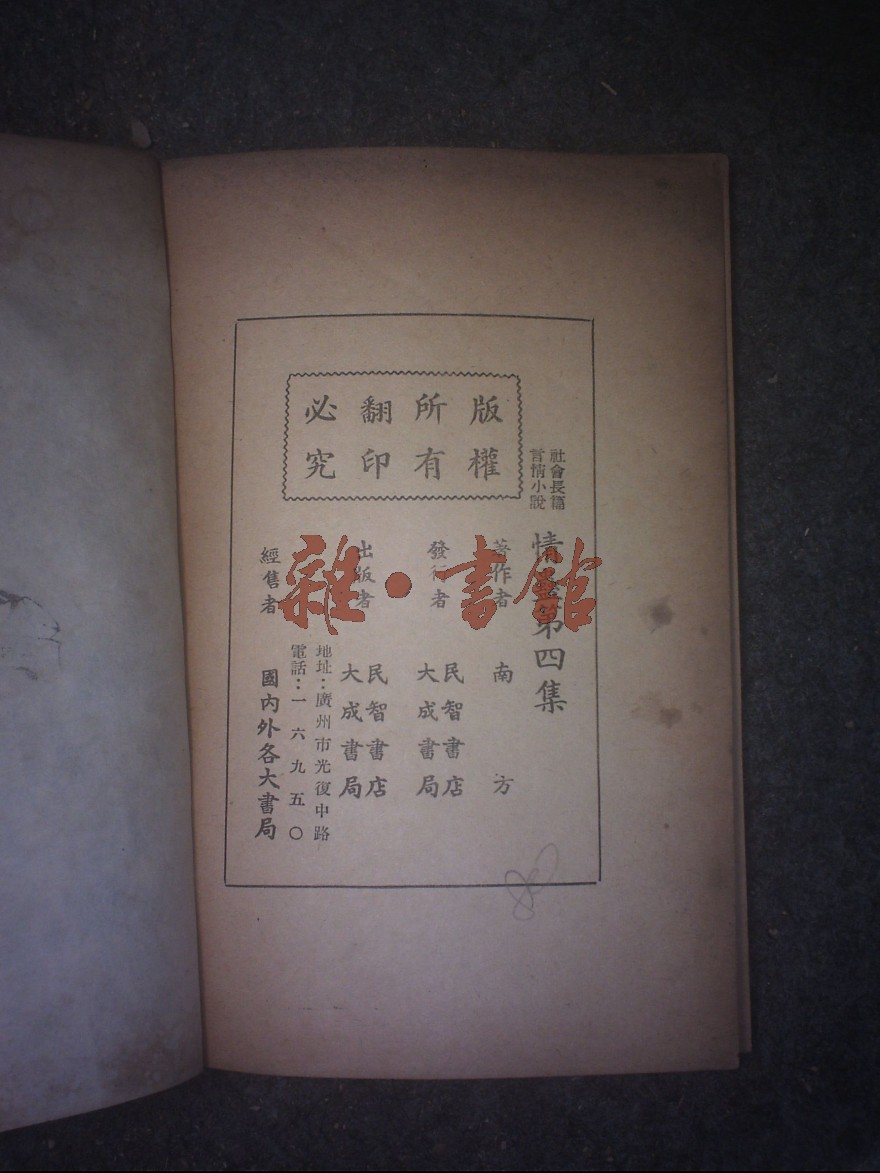 版權
所有
翻印
必究
社會長篇
言情小說
情 第四集
著作者 南方
發行者 民智書店
大成書局
出版者 民智書店
大成書局
地址：廣州市光復中路
電話：一六九五〇
經售者 國內外各大書局
雜·書館
80